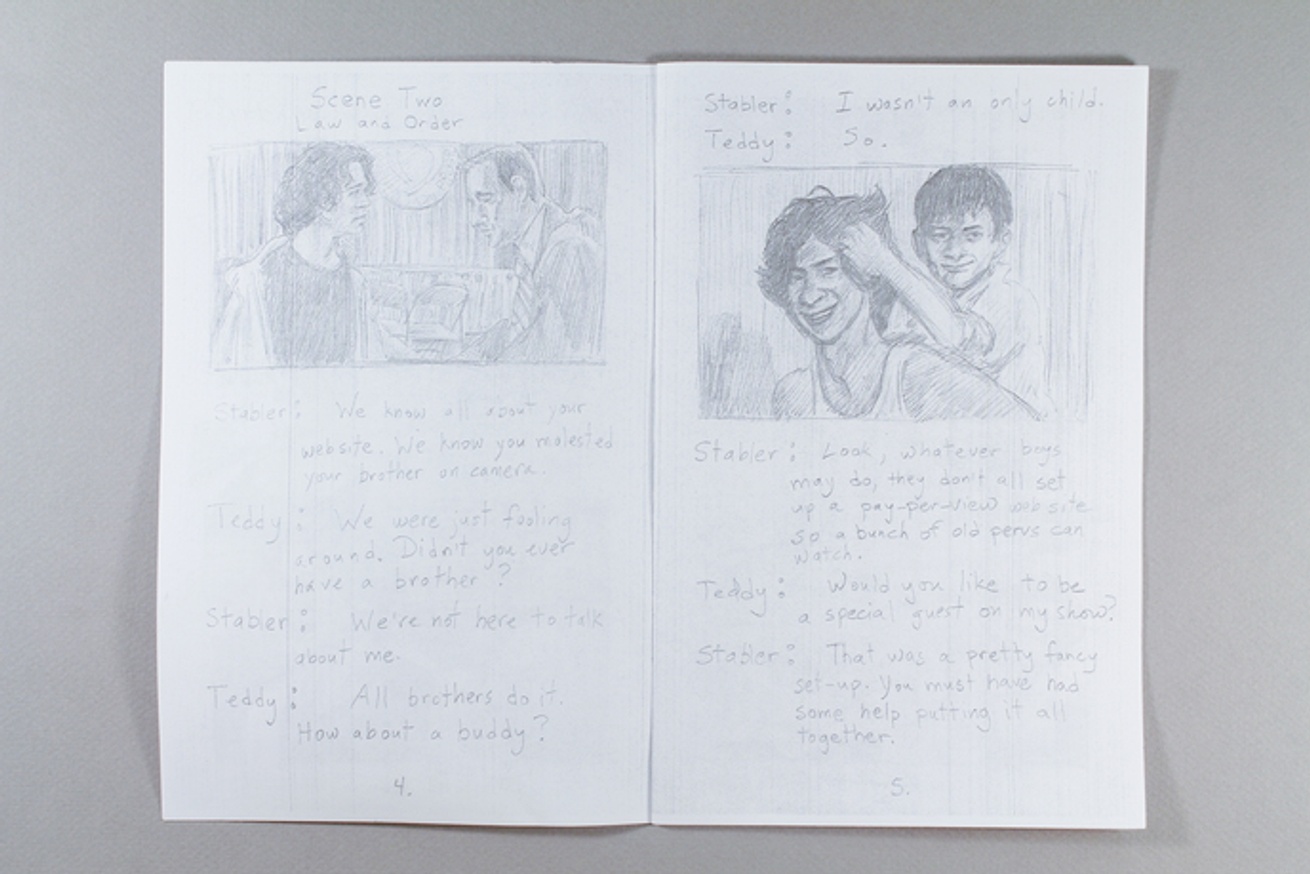 Scene Two
Law and Order
Stabler: We know all about your
website. We know you molested
your brother on camera.
Teddy: We were just fooling
around. Didn't you ever
have a brother?
Stabler: We're not here to talk
about me.
Teddy: All brothers do it.
How about a buddy?
4.
Stabler: I wasn't an only child.
Teddy: So.
Stabler: Look, whatever boys
may do, they don't all set
up a pay-per-view web site
so a bunch of old pervs can
watch.
Teddy: Would you like to be
a special guest on my show?
Stabler: That was a pretty fancy
set-up. You must have had
some help putting it all
together.
5.